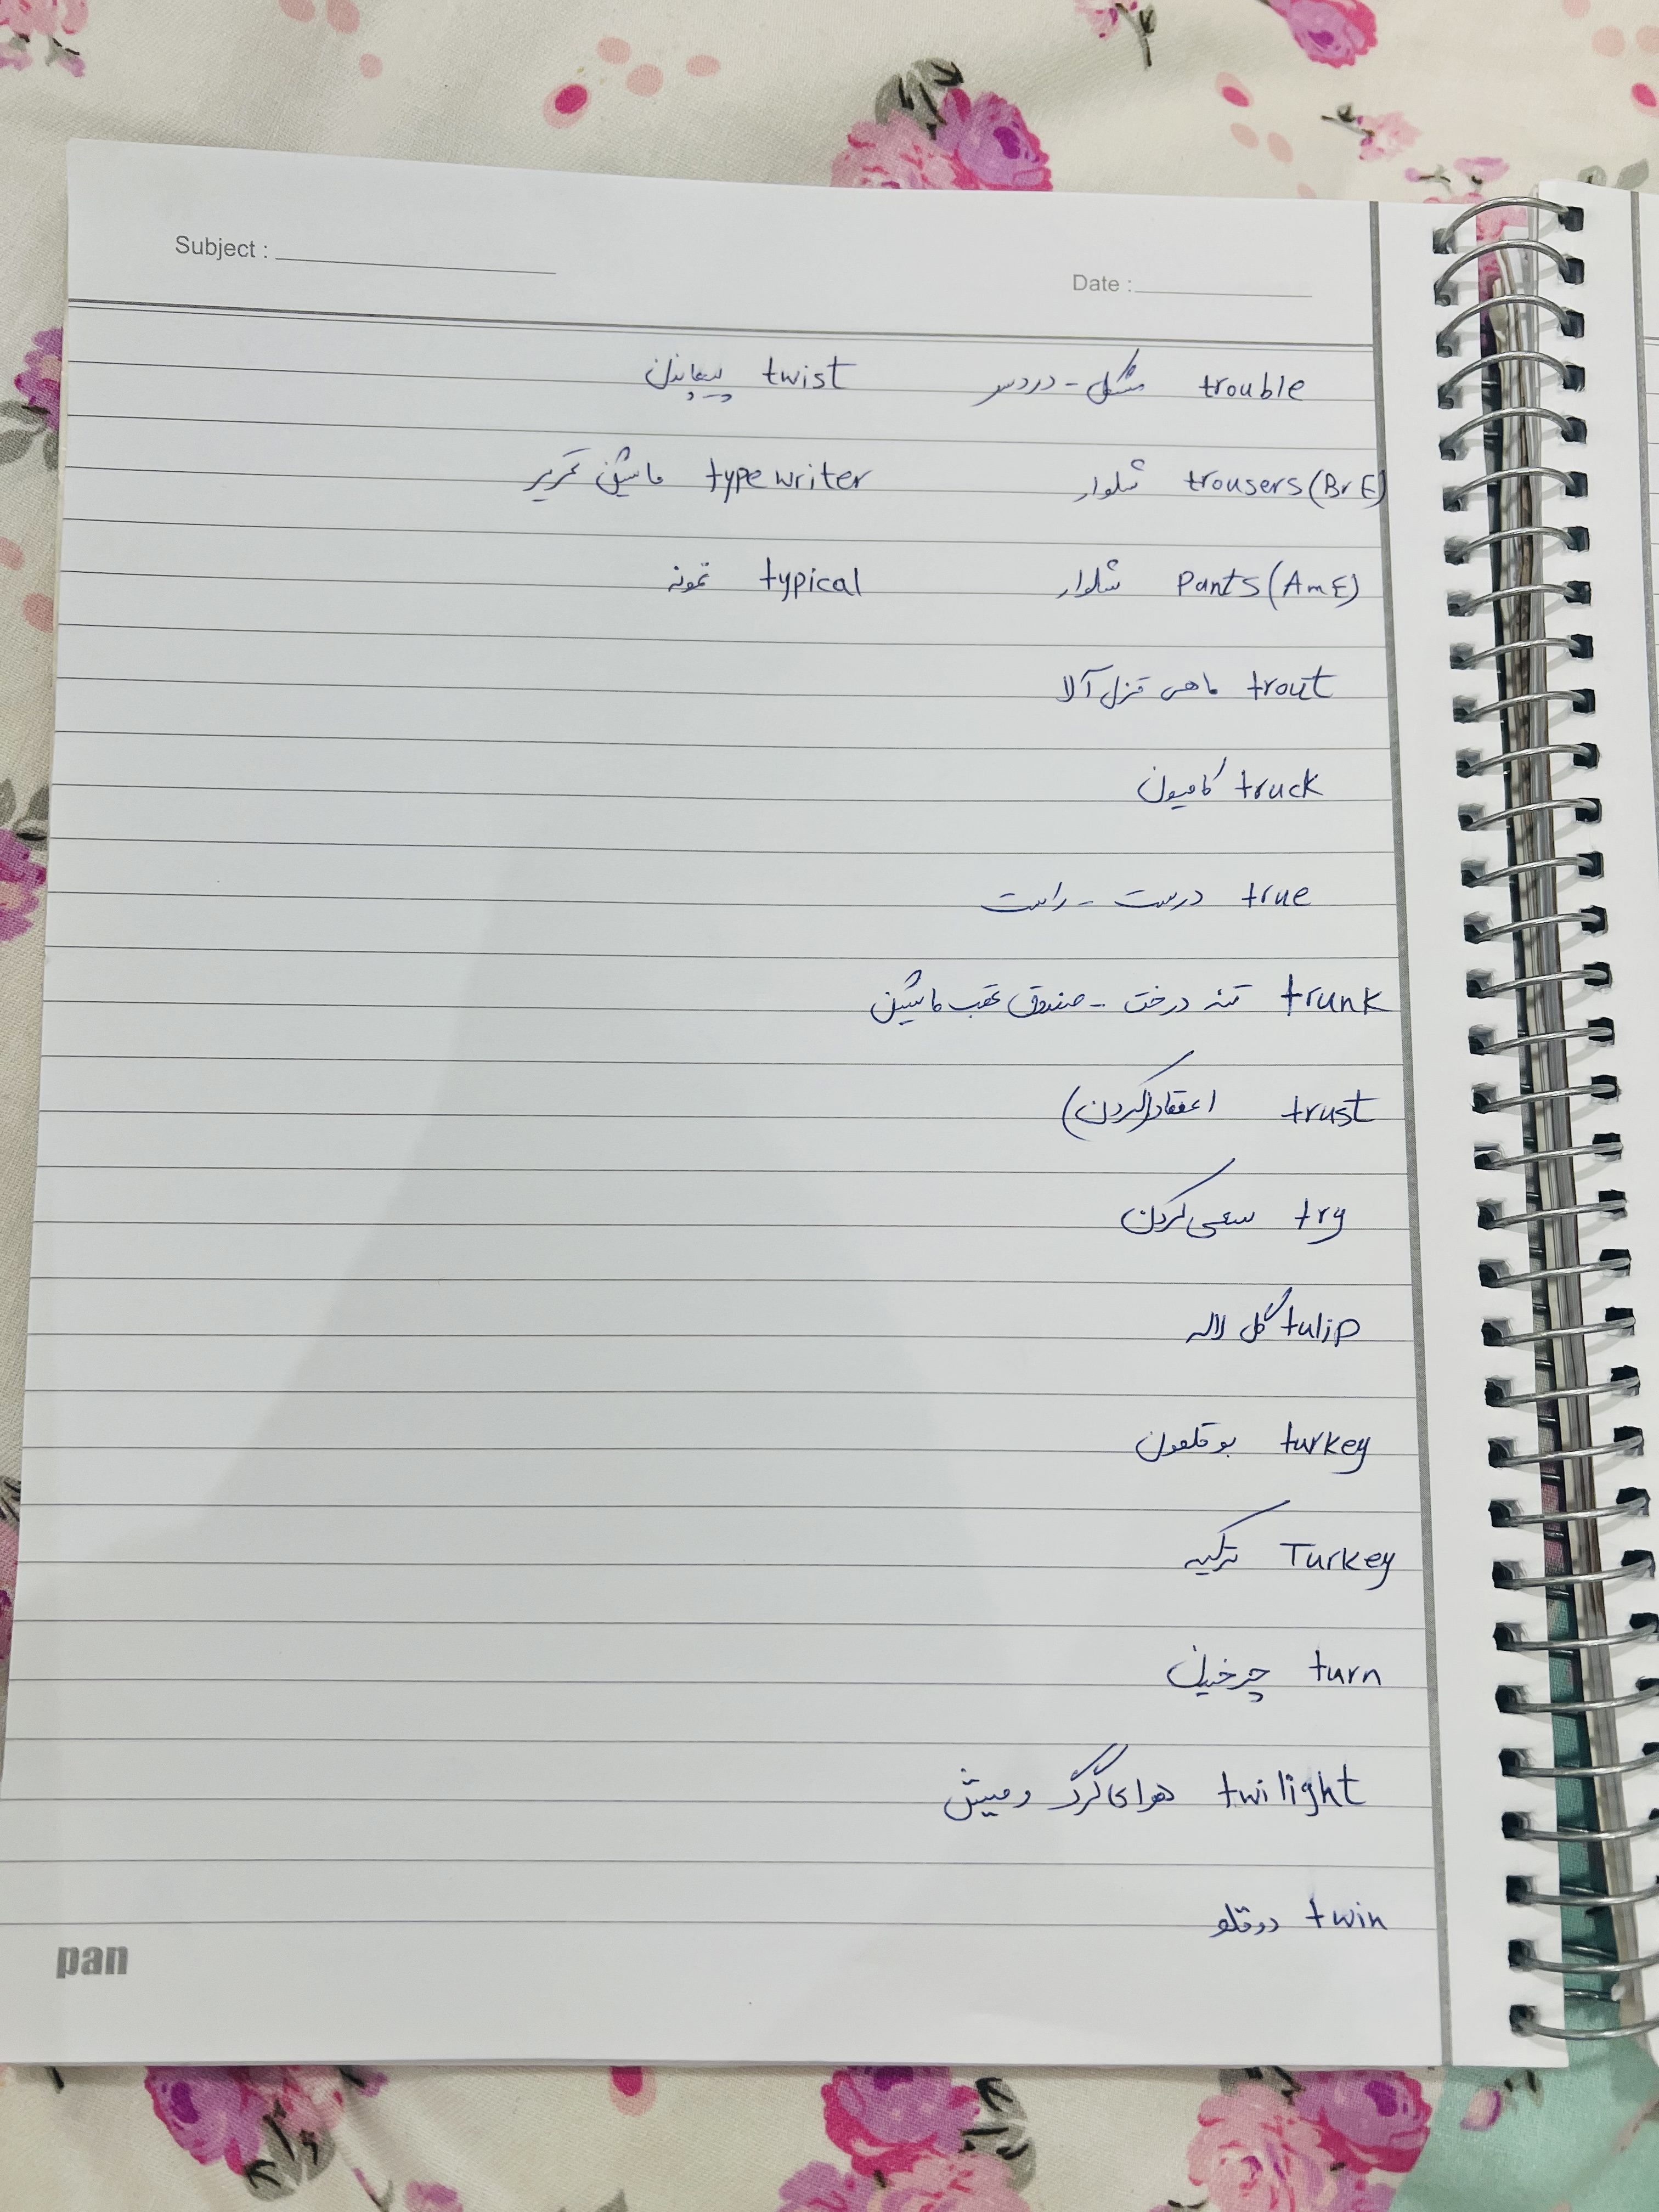 Subject :
Date :
trouble مشکل - دردسر
trousers (BrE) شلوار
Pants (AmE) شلوار
trout ماهی قزل آلا
truck کامیون
true درست - راست
trunk تنه درخت - صندوق عقب ماشین
trust اعتقاد (کردن)
try سعی کردن
tulip گل لاله
turkey بوقلمون
Turkey ترکیه
turn چرخیدن
twilight هوای گرگ و میش
twin دوقلو
twist پیچاندن
typewriter ماشین تحریر
typical نمونه
pan